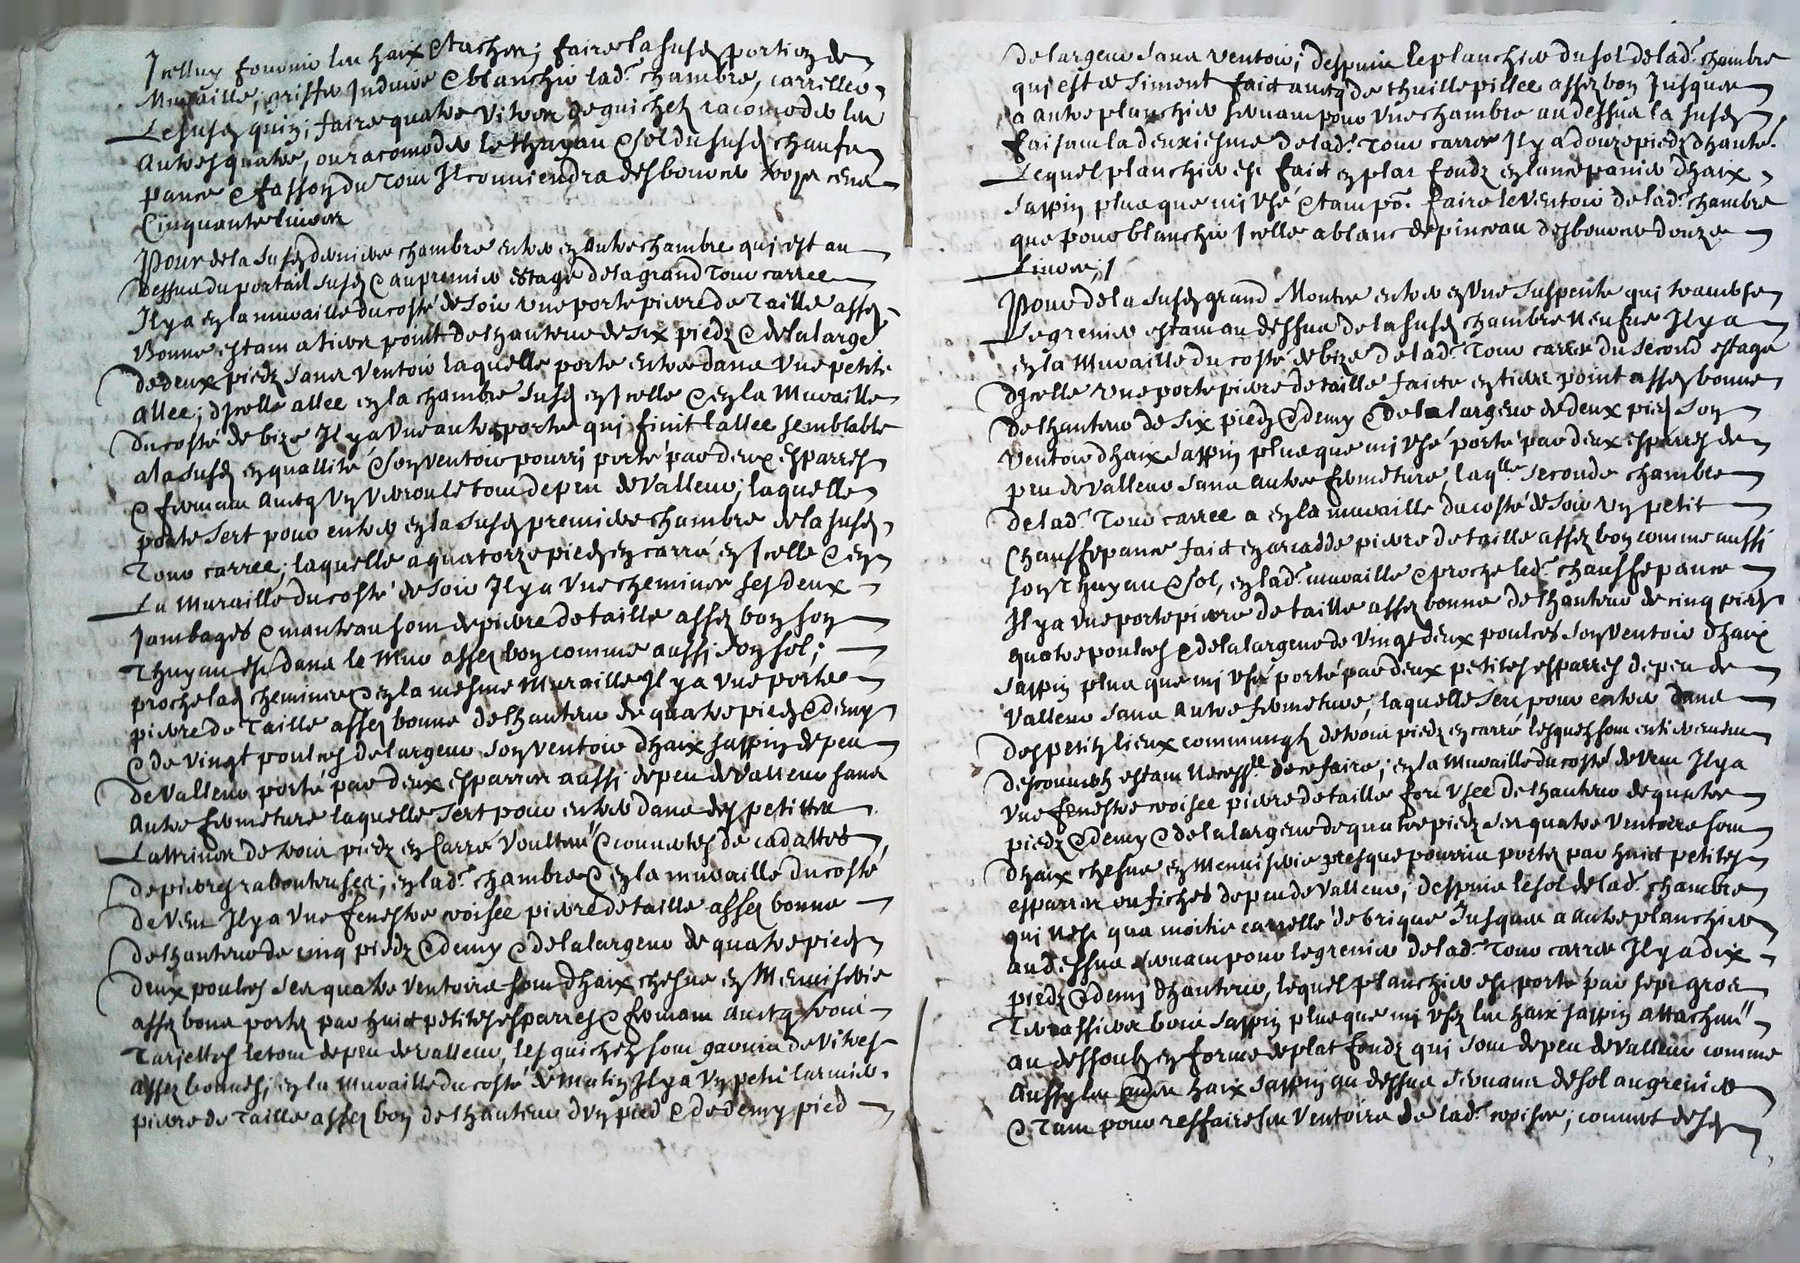 Icelluy fournir les haix & taches; faire la susd portion de
Muraille, griffer Induire & blanchir lad. chambre, carreller
Le susd quin; faire quatre vitres de guichets racomoder les
Autres quatre, ou racomoder le Thuyau & sol du susd chaufe
pance & fasson du Tour Il conviendra desbourcer trois cens
Cinquante livres
Pour de la susd derniere chambre entrer en autre chambre qui est au
Dessus du portail susd & au premier Estage de la grand Tour carree
Il ya en la muraille du costé de soir une porte pierre de Taille asses
Bonne estam a tiers point de lhauteur de six piedz & de la large
de deux piedz sans ventoir laquelle porte entre dans une petite
allee; dicelle allee en la chambre susd en Icelle & en la Muraille
du costé de bize Il ya une autre porte qui finit lallee semblable
a la susd en quallité & son ventoir pourri porté par deux esparres
& fermam avecq un verroul le tout de peu de valleur; laquelle
porte sert pour entrer en la susd premiere chambre de la susd
Tour carree; laquelle a quatorze piedz en carré en Icelle & en
La Muraille du costé de soir Il ya une cheminee ses deux
Jambages & manteau som de pierre de taille asses bon son
Thuyau est dans le Mur asses bon comme aussi son sol;
proche lad cheminee & en la mesme Muraille Il ya une porte
pierre de Taille asses bonne de lhauteur de quatre piedz & demy
& de vingt poulces de largeur son ventoir dhaix sappin de peu
de valleur porté par deux esparres aussi de peu de valleur sans
Autre fermeture laquelle sert pour entrer dans des petittes
Lattrines de trois piedz en Carré voultees & couvertes de cadattes
de pierres raboteuses; en lad. chambre & en la muraille du costé
de vem Il ya une fenestre croisee pierre de taille asses bonne
de lhauteur de cinq piedz & demy & de la largeur de quatre piedz
deux poulces ses quatre ventoirs som dhaix chesne en Menuiserie
asses bons portes par huict petites esparres & fermam avecq trois
Tarjettes le tout de peu de valleur, les guichetz som garnis de vitres
asses bonnes; en la muraille du costé de Matin Il ya un petit larmier
pierre de Taille asses bon de lhauteur dun pied & de demy pied
de largeur sans ventoir; despuis le planchier du sol de lad. chambre
qui est de siment faict avecq de thuille pillee asses bon Jusques
a autre planchier servam pour une chambre au dessus la susd
faisam la deuxiesme de lad. Tour carree Il ya douze piedz dhauter.
Lequel planchier est faict en plat fondz en lancepanie dhaix
sappin plus que mi usé & tam po. faire le ventoir de lad. chambre
que pour blanchir Icelle a blanc de pinceau desbourcer douze
Livres;/
Pour de la susd grand Montee entrer en une suspente qui traverse
Le grenier estam au dessus de la susd chambre neufve Il ya
en la Muraille du costé de bize de lad. Tour carree du second estage
dIcelle une porte pierre de taille faicte en tiers point asses bonne
de lhauteur de six piedz & demy & de la largeur de deux pieds son
ventoir dhaix sappin plus que mi usé porté par deux esparres de
peu de valleur sans autre fermeture, laqlle seconde chambre
de lad. Tour carree a en la muraille du costé de soir un petit
Chauffepance faict en arcadde pierre de taille asses bon comme aussi
son Thuyau & sol, en lad. muraille & proche led. chauffepance
Il ya une porte pierre de taille asses bonne de lhauteur de cinq pieds
quatre poulces & de la largeur de vingt deux poulces son ventoir dhaix
sappin plus que mi usé porté par deux petites esparres de peu de
valleur sans autre fermeture, laquelle sert pour entrer dans
des petitz lieux communs de trois piedz en carré lesquels som entierement
descouvertz estam necessre de ce faire; en la Muraille du costé de vem Il ya
une fenestre croisee pierre de taille fort usee de lhauteur de quatre
piedz & demy & de la largeur de quatre piedz ses quatre ventoirs som
dhaix chesne en Menuiserie presque pourris portes par huict petites
esparres ou fiches de peu de valleur, despuis le sol de lad. chambre
qui nest qua moitié carrellé de brique Jusques a autre planchier
au dessus servam pour le grenier de lad. Tour carree Il ya dix
piedz & demi dhauteur, lequel planchier est porté par sept gros
Terrassiers bois sappin plus que mi usez les haix sappin attachez
au dessoubz en forme de plat fondz qui som de peu de valleur comme
Aussy les autres haix sappin au dessus servans de sol au grenier
& Tam pour reffaire les ventoirs de lad. croisee; couvert des